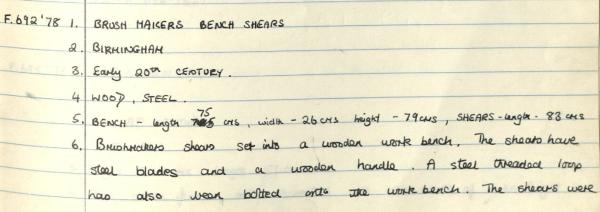 F.692'78 1. BRUSH MAKERS BENCH SHEARS
2. BIRMINGHAM
3. Early 20th CENTURY.
4 WOOD, STEEL.
5. BENCH - length 75 cms, width - 26 cms height - 79 cms, SHEARS - length - 83 cms
6. Brushmakers shears set into a wooden work bench. The shears have
steel blades and a wooden handle. A steel threaded loop
has also been bolted onto the work bench. The shears were